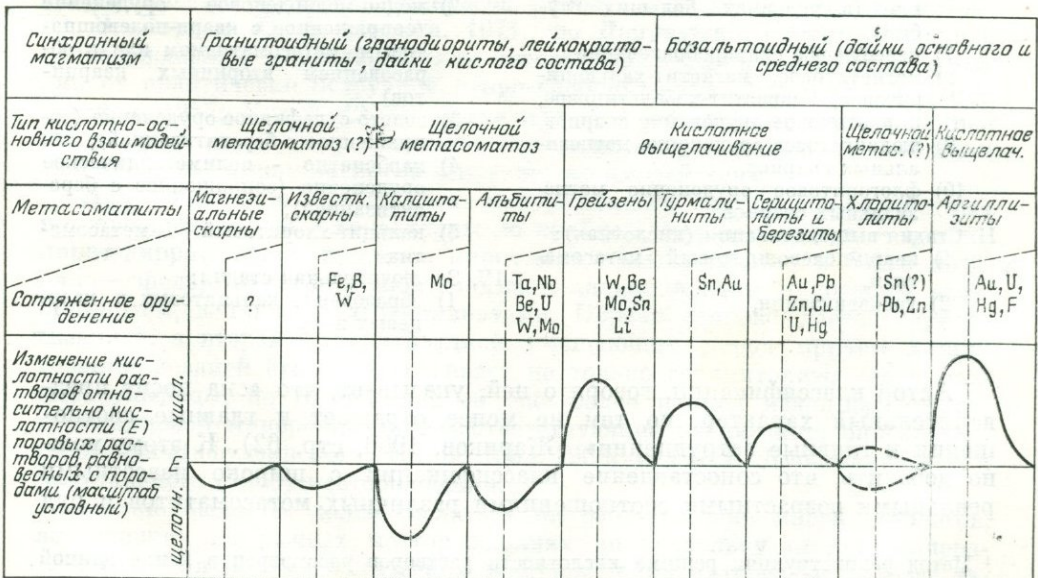 Синхронный
магматизм
Гранитоидный (гранодиориты, лейкократо-
вые граниты, дайки кислого состава)
Базальтоидный (дайки основного и
среднего состава)
Тип кислотно-ос-
новного взаимодей-
ствия
Щелочной
метасоматоз (?)
Щелочной
метасоматоз
Кислотное
выщелачивание
Щелочной
метас. (?)
Кислотное
выщелач.
Метасоматиты
Магнези-
альные
скарны
Известк.
скарны
Калишпа-
титы
Альбити-
ты
Грейзены
Турмали-
ниты
Серицито-
литы и
березиты
Хлорито-
литы
Аргилли-
зиты
Сопряженное ору-
денение
?
Fe,B,
W
Mo
Ta,Nb
Be,U
W,Mo
W,Be
Mo,Sn
Li
Sn,Au
Au,Pb
Zn,Cu
U,Hg
Sn(?)
Pb,Zn
Au,U,
Hg,F
Изменение кис-
лотности рас-
творов отно-
сительно кис-
лотности (E)
поровых рас-
творов, равно-
весных с поро-
дами (масштаб
условный)
кисл.
E
щелочн.